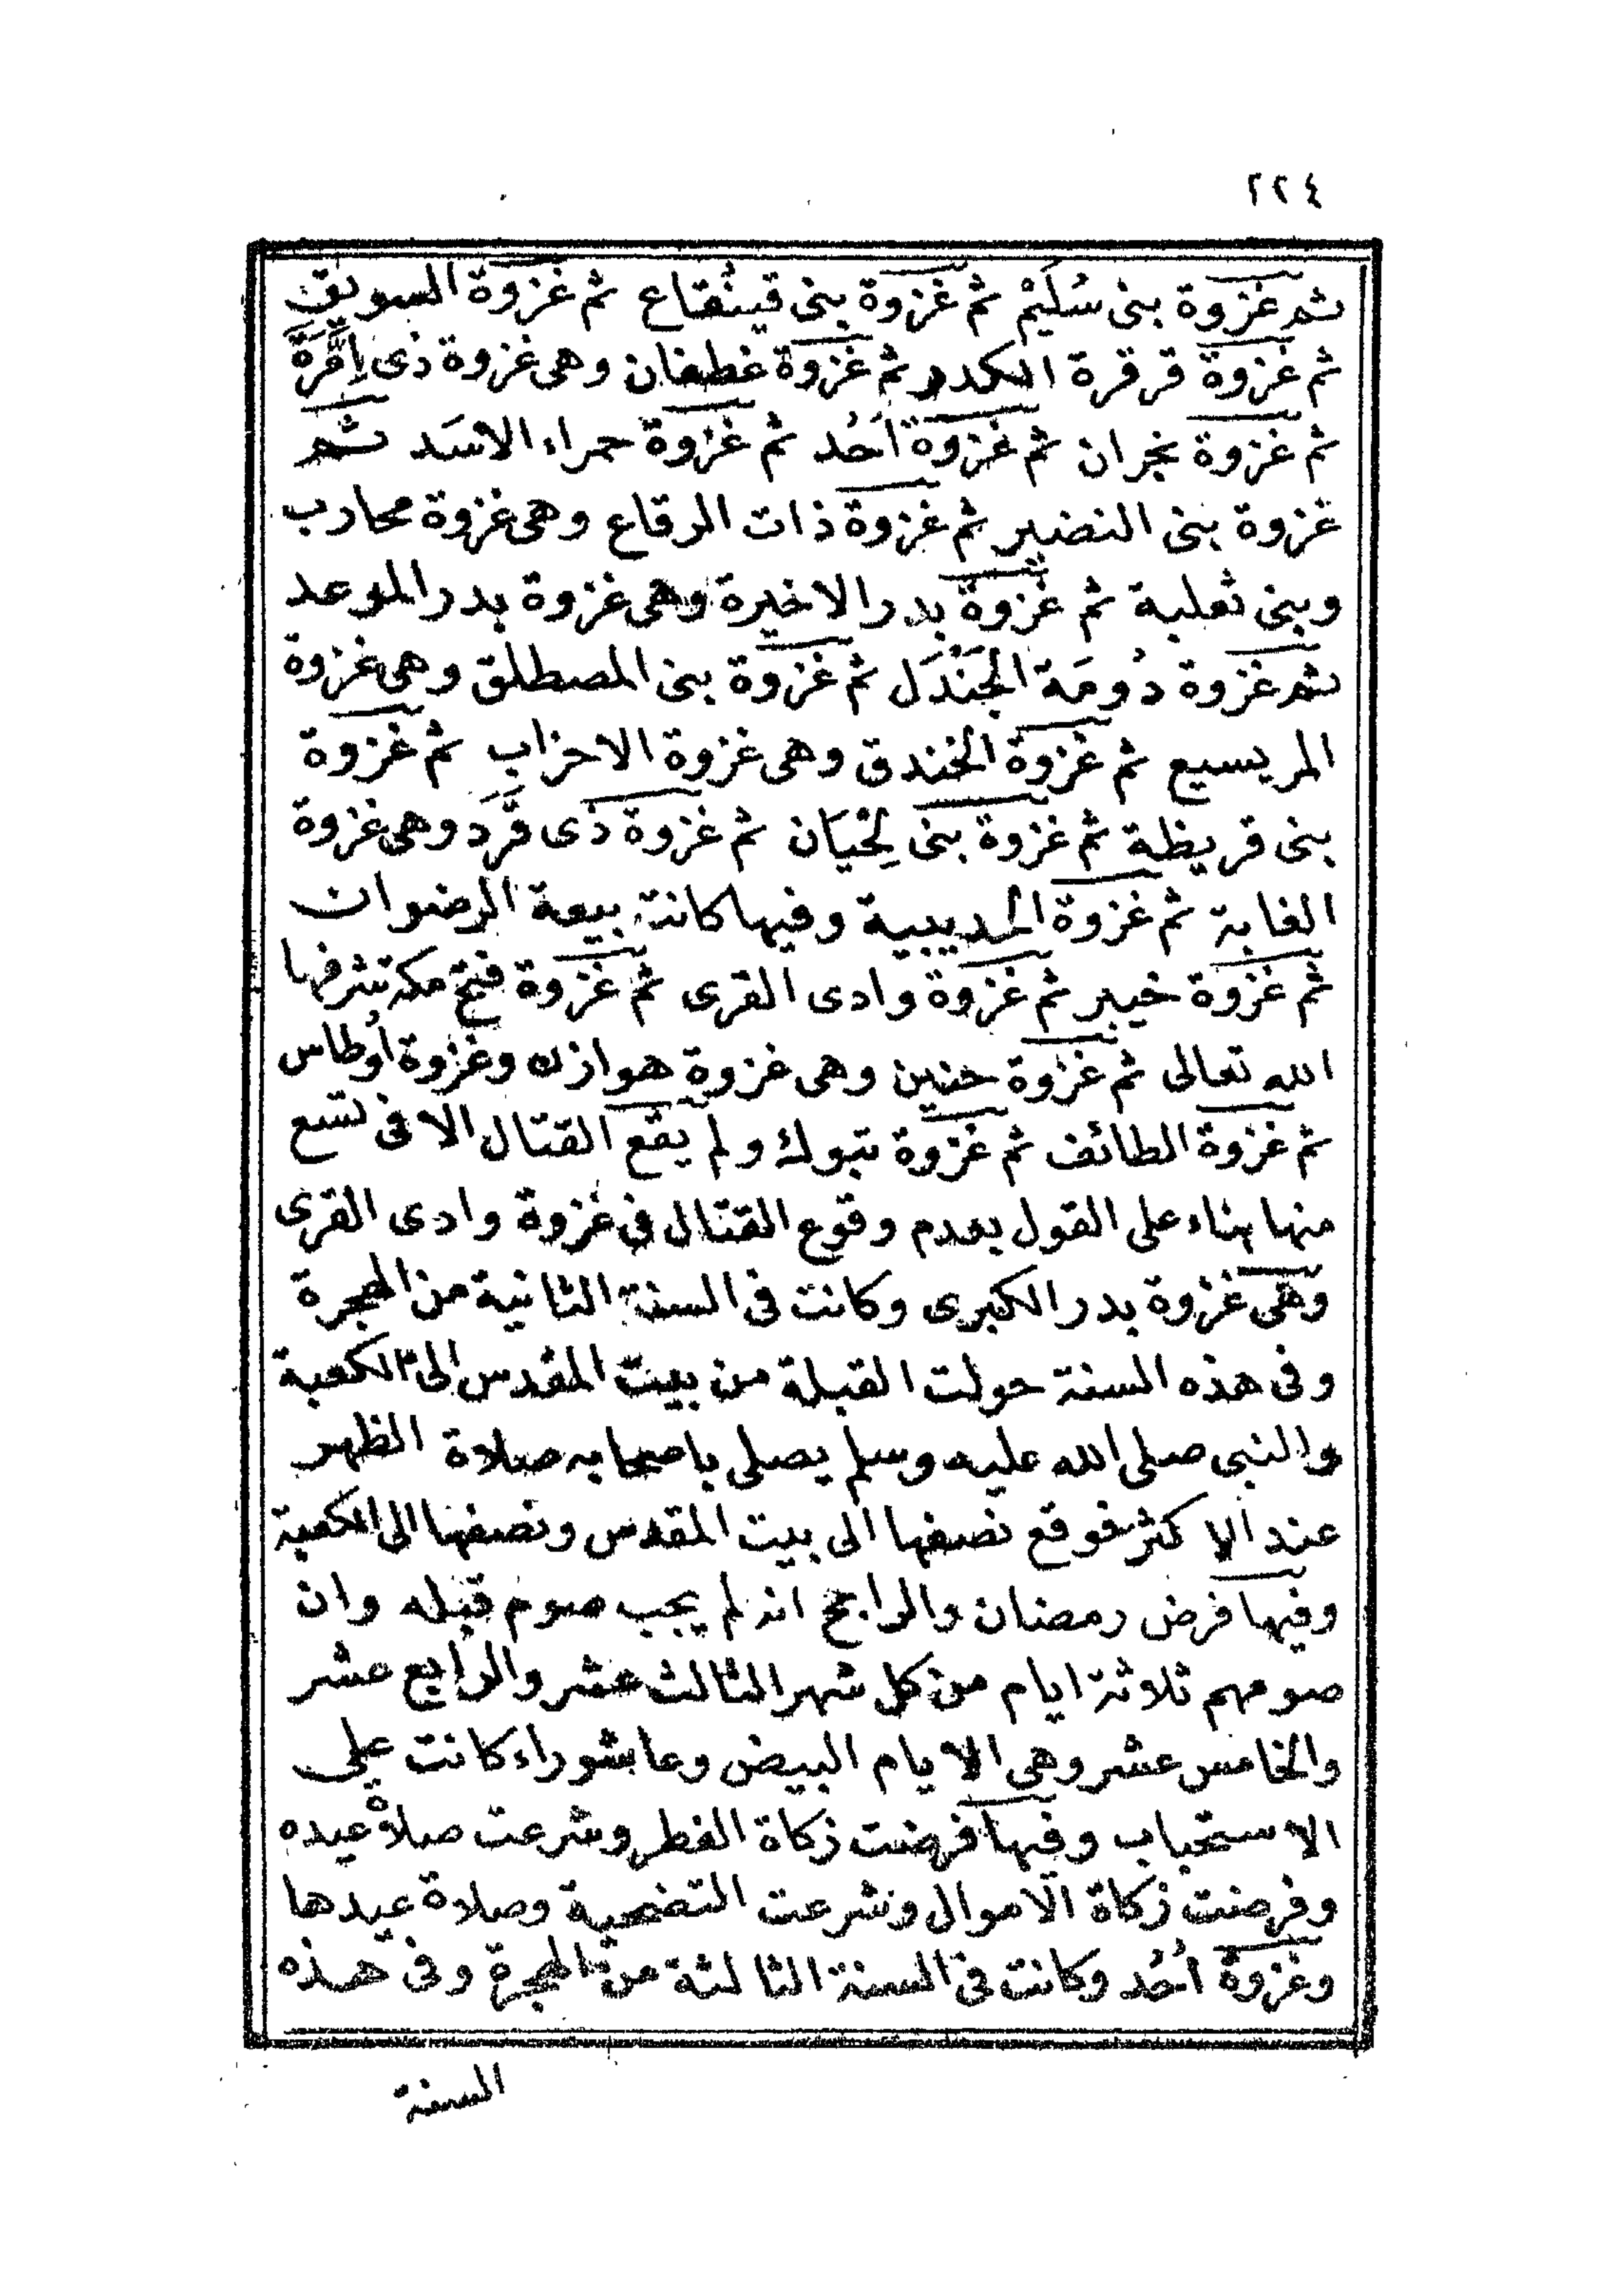 ٢٢٤
ثم غزوة بنى سُلَيْم ثم غزوة بنى قينُقاع ثم غزوة السويق
ثم غزوة قرقرة الكدر ثم غزوة غطفان وهى غزوة ذى اِمَّرَّة
ثم غزوة نجران ثم غزوة اُحُد ثم غزوة حمراء الاسَد ثم
غزوة بنى النضير ثم غزوة ذات الرقاع وهى غزوة محارب
وبنى ثعلبة ثم غزوة بدر الاخيرة وهى غزوة بدر الموعد
ثم غزوة دُومَة الجَنْدَل ثم غزوة بنى المصطلق وهى غزوة
المريسيع ثم غزوة الخندق وهى غزوة الاحزاب ثم غزوة
بنى قريظة ثم غزوة بنى لِحْيَان ثم غزوة ذى قَرَد وهى غزوة
الغابة ثم غزوة الحديبية وفيها كانت بيعة الرضوان
ثم غزوة خيبر ثم غزوة وادى القرى ثم غزوة فتح مكة شرفها
الله تعالى ثم غزوة حنين وهى غزوة هوازن وغزوة أوطاس
ثم غزوة الطائف ثم غزوة تبوك ولم يقع القتال الا فى تسع
منها بناء على القول بعدم وقوع القتال فى غزوة وادى القرى
وهى غزوة بدر الكبرى وكانت فى السنة الثانية من الهجرة
وفى هذه السنة حولت القبلة من بيت المقدس الى الكعبة
والنبى صلى الله عليه وسلم يصلى باصحابه صلاة الظهر
عند الاكثر فوقع نصفها الى بيت المقدس ونصفها الى الكعبة
وفيها فرض رمضان والراجح انه لم يجب صوم قبله وان
صومهم ثلاثة ايام من كل شهر الثالث عشر والرابع عشر
والخامس عشر وهى الايام البيض وعاشوراء كانت على
الاستحباب وفيها فرضت زكاة الفطر وشرعت صلاة عيده
وفرضت زكاة الاموال وشرعت التضحية وصلاة عيدها
وغزوة اُحُد وكانت فى السنة الثالثة من الهجرة وفى هذه
السنة